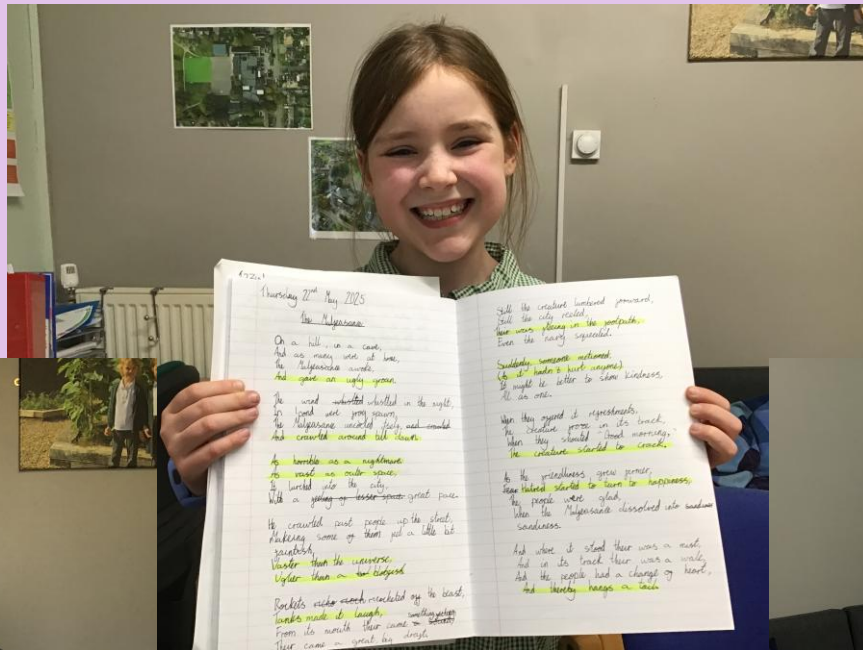 Thursday 22nd May 2025
The Malfeasance
On a hill, in a cave,
And as many were at home,
The Malfeasance awoke,
And gave an ugly groan.
The wind whistled whistled in the night,
In pond were frog spawn,
The Malfeasance uncoiled freely,
And crawled around till dawn
As horrible as a nightmare
As vast as outer space,
It lurched into the city,
With a great pace
He crawled past people up the street,
Making some of them feel a little bit
faintish,
Vaster than the universe
Uglier than a
Rockets ricocheted off the beast,
Tanks made it laugh,
From its mouth their came
Their came a great big
Still the creature lumbered forward,
Still the city reeled,
Their was fleeing in the footpath,
Even the navy squealed.
Suddenly someone motioned,
(As it hadn't hurt anyone)
It might be better to show kindness
All as one.
When they offered it refreshments,
The creature froze in its track,
When they shouted "Good morning,"
The creature started to crack.
As the friendliness grew firmer,
Fear Hatred started to turn to happiness,
The people were glad,
When the Malfeasance dissolved into
sandiness
And where it stood their was a
And in its track their was a
And the people had a change of heart,
And thereby hangs a tale